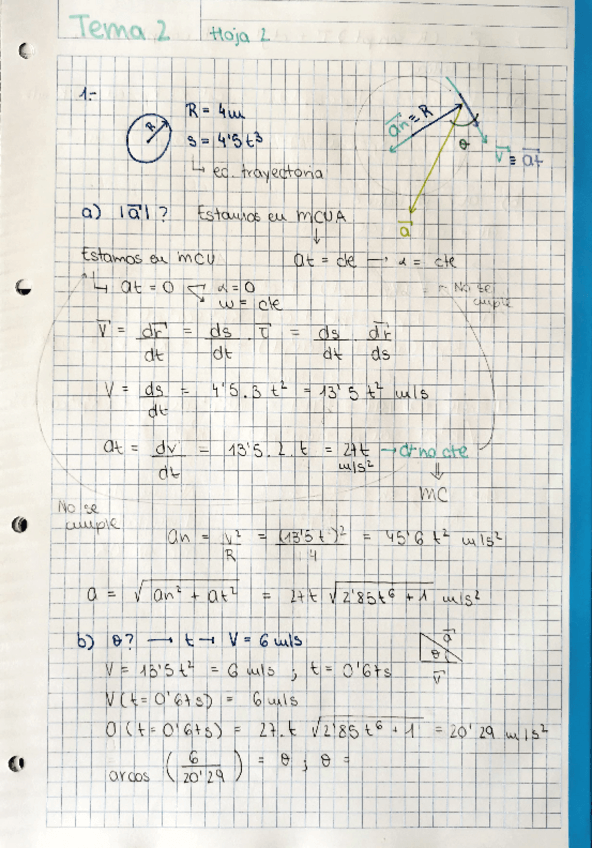 Tema 2 Hoja 2
1.-
R
R = 4m
s = 4'5t³
↳ ec. trayectoria
an ≡ R
θ
v ≡ at
a
a) |a| ? Estamos en MCUA
↓
Estamos en MCU at = cte → α = cte
↳ at = 0 α = 0
ω = cte
No se cumple
V = dr/dt = ds/dt · τ = ds/dt · dr/ds
V = ds/dt = 4'5·3 t² = 13'5 t² m/s
at = dv/dt = 13'5·2·t = 27t m/s² → at no cte
⇓
MC
No se cumple
an = v²/R = (13'5 t)²/4 = 45'6 t² m/s²
a = √an² + at² = 27t √2'85t⁶ + 1 m/s²
b) θ? → t → V = 6 m/s
a
θ
v
V = 13'5t² = 6 m/s ; t = 0'67s
V(t=0'67s) = 6 m/s
a(t=0'67s) = 27·t √2'85t⁶ + 1 = 20'29 m/s²
arcos (6/20'29) = θ ; θ =